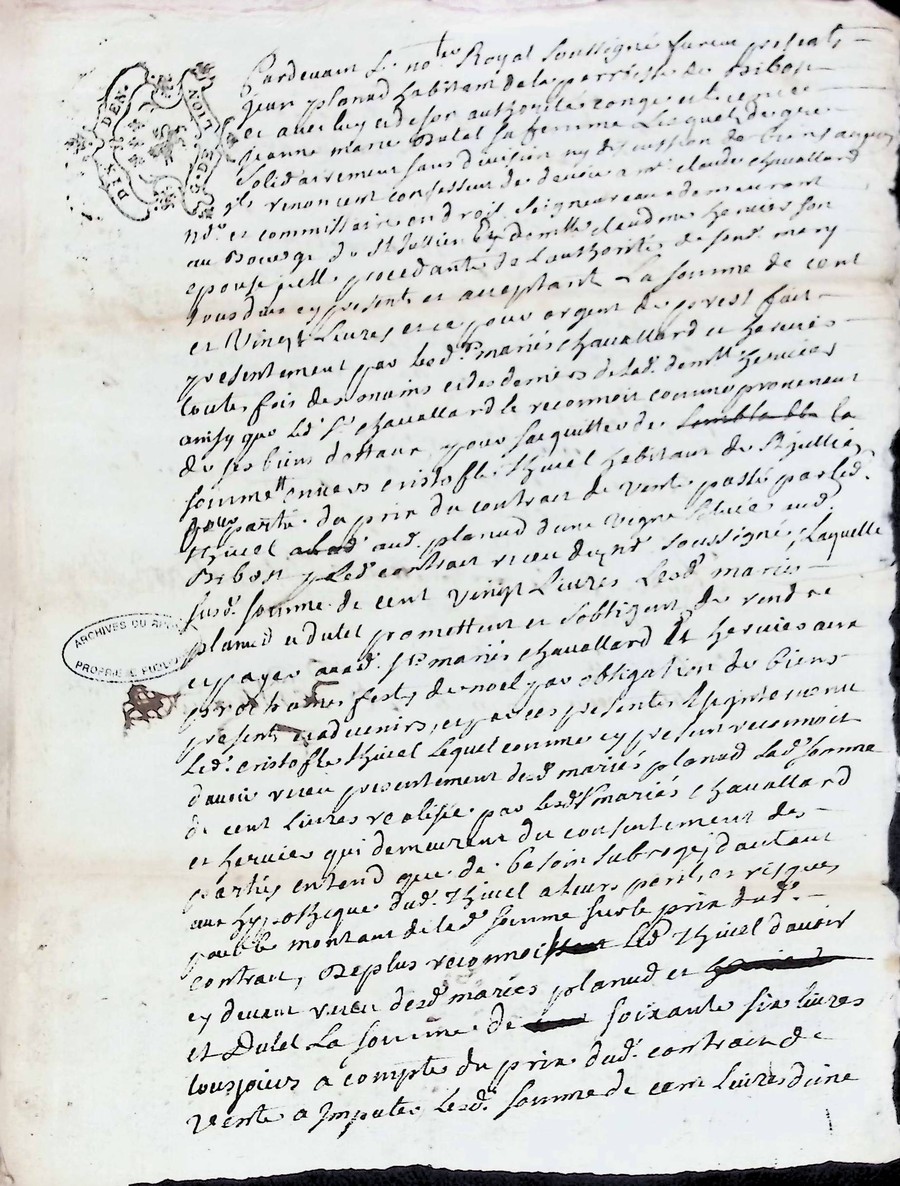 DIX. DEN.
G. DE LION
Pardevant Le no.re Royal soussigné furent presents
jean planud habitant de la parroisse de Bibost
et avec luy et de son authorité conge et licence
jeanne marie Dulel sa femme Lesquels de gre
solidairement sans division ny discussion de biens auxquels
ils renoncent confessent de devoir a mr. claude chavallard
nd. et commissaire en droit seigneureaux demeurant
au Bourg de St Jullien Et demlle claudine hervier son
epouse icelle procedante de l'authorité de sond. mary
tous deux cy presents et acceptant La somme de cent
et Vingt Livres et ce pour argent de prest fait
presentement par lesd. mariés chavallard et hervier
toutes fois des mains et des deniers de lad. demlle hervier
ainsy que Led. Sr. chavallard le reconnoit comme provenant
de ses biens dottaux, pour s'acquitter de la
somme envers cristofle thivel habitant de St Jullien
pour partie du prix du contract de vente passé par led.
thivel aud. planud d'une vigne située aud.
Bibost Led. contract receu du nre soussigné, Laquelle
susd. somme de cent vingt Livres Lesd. mariés
planud et dulel promettent et s'obligent de rendre
et payer auxd. Srs mariés chavallard et hervier aux
prochaines festes de noel par obligation de biens
presents et advenirs, et par ces presentes
Led. cristofle thivel Lequel comme cy present reconnoit
d'avoir receu presentement desd. mariés planud lad. somme
de cent Livres realisée par lesd. mariés chavallard
et hervier qui demeurent du consentement des
parties entend que de besoin subrogé, d'autant
aux hypotheque dud. thivel a leurs perils et risques
pour le montant de lad. somme sur le prix dud.
contrat, De plus reconnoi Led. thivel d'avoir
cy devant receu desd. mariés planud et
et Dulel La somme de soixante six livres
tousjours a compte du prix dud. contrat de
vente a Imputer Lesd. somme de cent Livres d'une
ARCHIVES DU RHONE
PROPRIETE PUBLIQUE